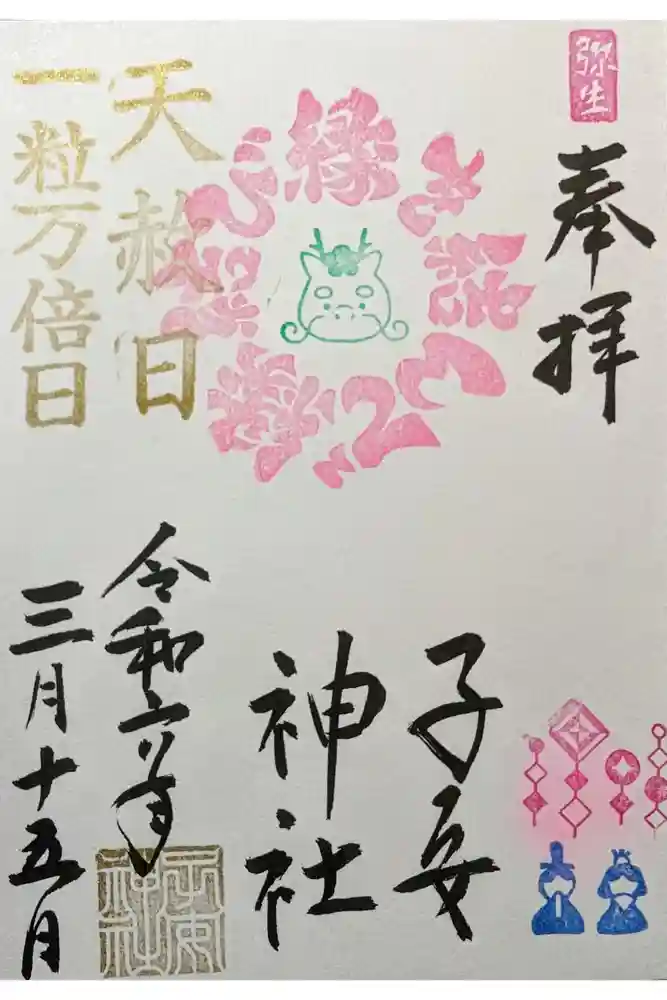 弥生
奉拝
縁
天赦日
一粒万倍日
子安
神社
令和六年
三月十五日
子安
神社